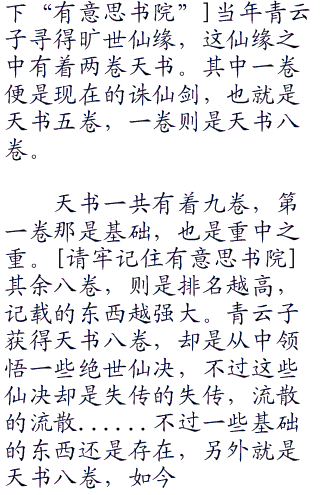 下“有意思书院”]当年青云
子寻得旷世仙缘，这仙缘之
中有着两卷天书。其中一卷
便是现在的诛仙剑，也就是
天书五卷，一卷则是天书八
卷。
天书一共有着九卷，第
一卷那是基础，也是重中之
重。[请牢记住有意思书院]
其余八卷，则是排名越高，
记载的东西越强大。青云子
获得天书八卷，却是从中领
悟一些绝世仙决，不过这些
仙决却是失传的失传，流散
的流散......不过一些基础
的东西还是存在，另外就是
天书八卷，如今